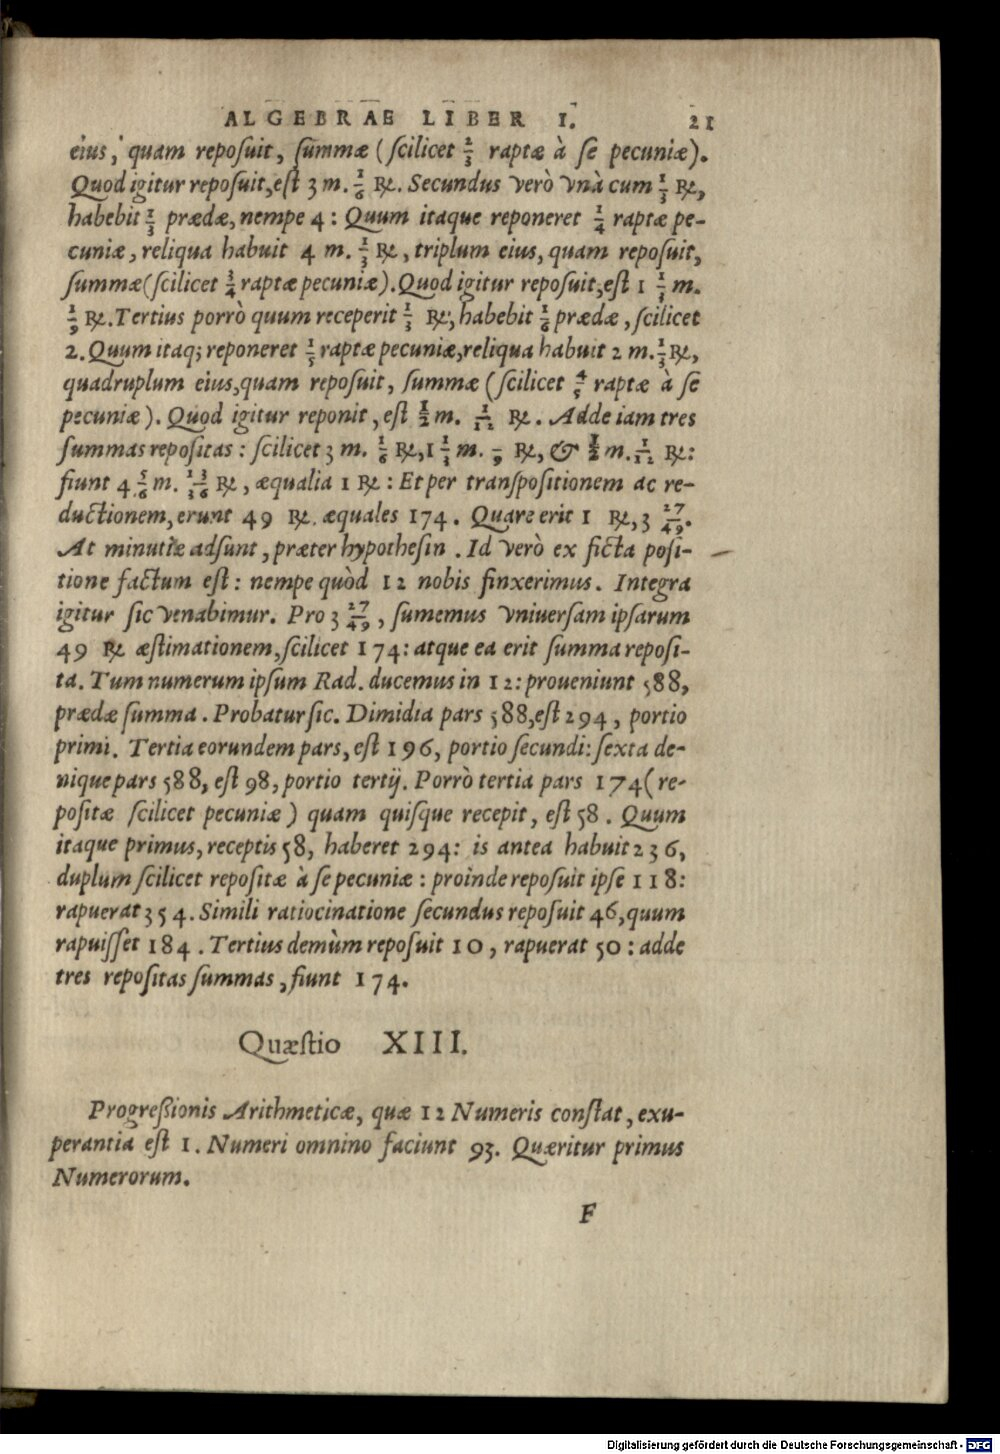 ALGEBRAE LIBER I. 21
eius, quam reposuit, summæ (scilicet 2/3 raptæ à se pecuniæ).
Quod igitur reposuit, est 3 m. 1/6 ℞. Secundus verò vnà cum 1/3 ℞,
habebit 1/3 prædæ, nempe 4: Quum itaque reponeret 1/4 raptæ pe-
cuniæ, reliqua habuit 4 m. 1/3 ℞, triplum eius, quam reposuit,
summæ (scilicet 3/4 raptæ pecuniæ). Quod igitur reposuit, est 1 1/3 m.
1/9 ℞. Tertius porrò quum receperit 1/3 ℞, habebit 1/6 prædæ, scilicet
2. Quum itaq; reponeret 1/5 raptæ pecuniæ, reliqua habuit 2 m. 1/3 ℞,
quadruplum eius, quam reposuit, summæ (scilicet 4/5 raptæ à se
pecuniæ). Quod igitur reponit, est 1/2 m. 1/12 ℞. Adde iam tres
summas repositas: scilicet 3 m. 1/6 ℞, 1 1/3 m. /9 ℞, & 1/2 m. 1/12 ℞:
fiunt 4 5/6 m. 13/36 ℞, æqualia 1 ℞: Et per transpositionem ac re-
ductionem, erunt 49 ℞. æquales 174. Quare erit 1 ℞, 3 27/49.
At minutiæ adsunt, præter hypothesin. Id verò ex ficta posi-
tione factum est: nempe quòd 12 nobis finxerimus. Integra
igitur sic venabimur. Pro 3 27/49, sumemus vniuersam ipsarum
49 ℞ æstimationem, scilicet 174: atque ea erit summa reposi-
ta. Tum numerum ipsum Rad. ducemus in 12: proueniunt 588,
prædæ summa. Probatur sic. Dimidia pars 588, est 294, portio
primi. Tertia eorundem pars, est 196, portio secundi: sexta de-
nique pars 588, est 98, portio tertij. Porrò tertia pars 174 (re-
positæ scilicet pecuniæ) quam quisque recepit, est 58. Quum
itaque primus, receptis 58, haberet 294: is antea habuit 236,
duplum scilicet repositæ à se pecuniæ: proinde reposuit ipse 118:
rapuerat 354. Simili ratiocinatione secundus reposuit 46, quum
rapuisset 184. Tertius demùm reposuit 10, rapuerat 50: adde
tres repositas summas, fiunt 174.
Quæstio XIII.
Progreßionis Arithmeticæ, quæ 12 Numeris constat, exu-
perantia est 1. Numeri omnino faciunt 93. Quæritur primus
Numerorum.
F
Digitalisierung gefördert durch die Deutsche Forschungsgemeinschaft - DFG